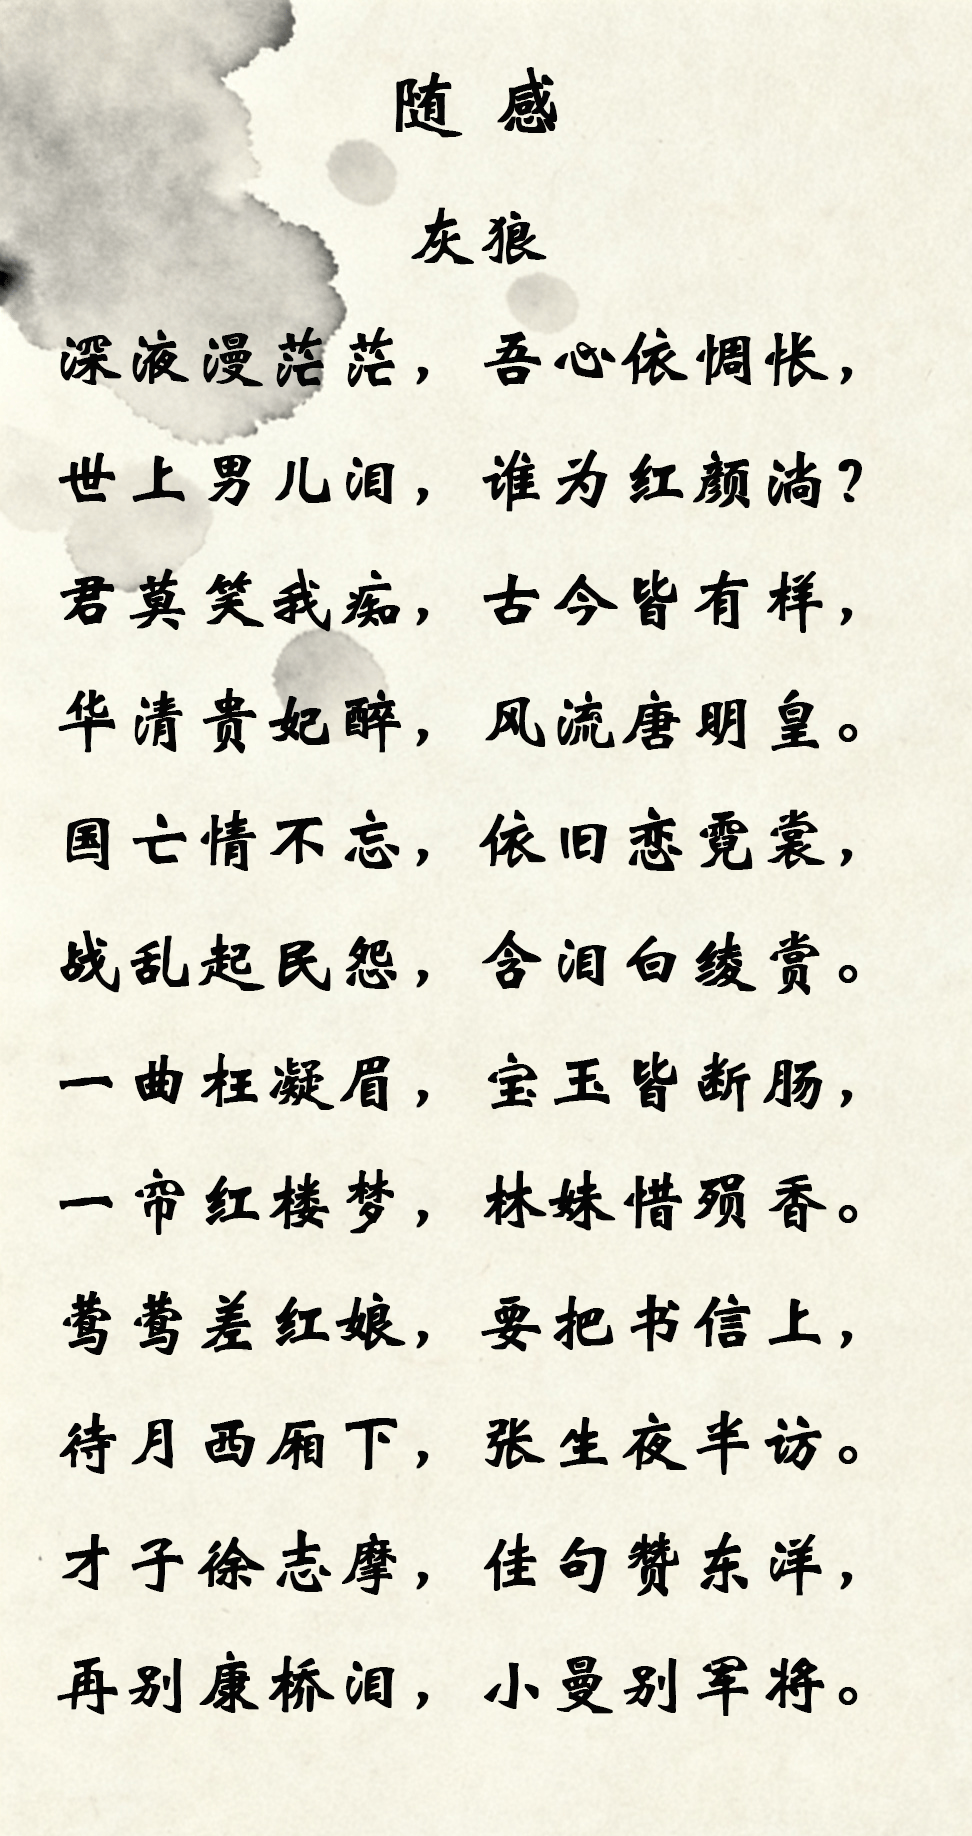 随 感
灰狼
深液漫茫茫，吾心依惆怅，
世上男儿泪，谁为红颜淌？
君莫笑我痴，古今皆有样，
华清贵妃醉，风流唐明皇。
国亡情不忘，依旧恋霓裳，
战乱起民怨，含泪白绫赏。
一曲枉凝眉，宝玉皆断肠，
一帘红楼梦，林妹惜殒香。
莺莺差红娘，要把书信上，
待月西厢下，张生夜半访。
才子徐志摩，佳句赞东洋，
再别康桥泪，小曼别军将。